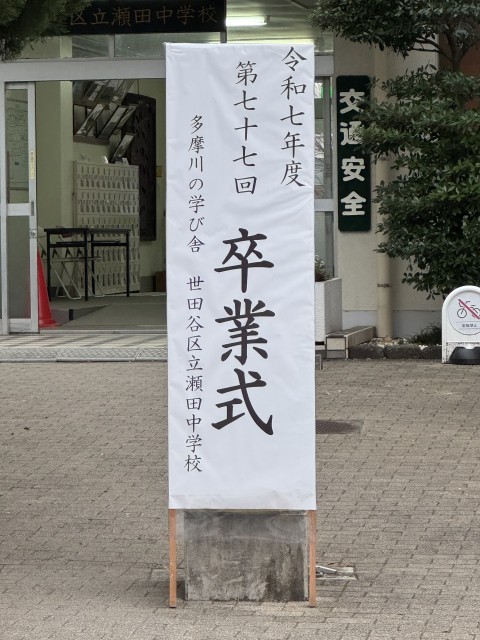 令和七年度
第七十七回
卒業式
多摩川の学び舎 世田谷区立瀬田中学校
区立瀬田中学校
交通安全